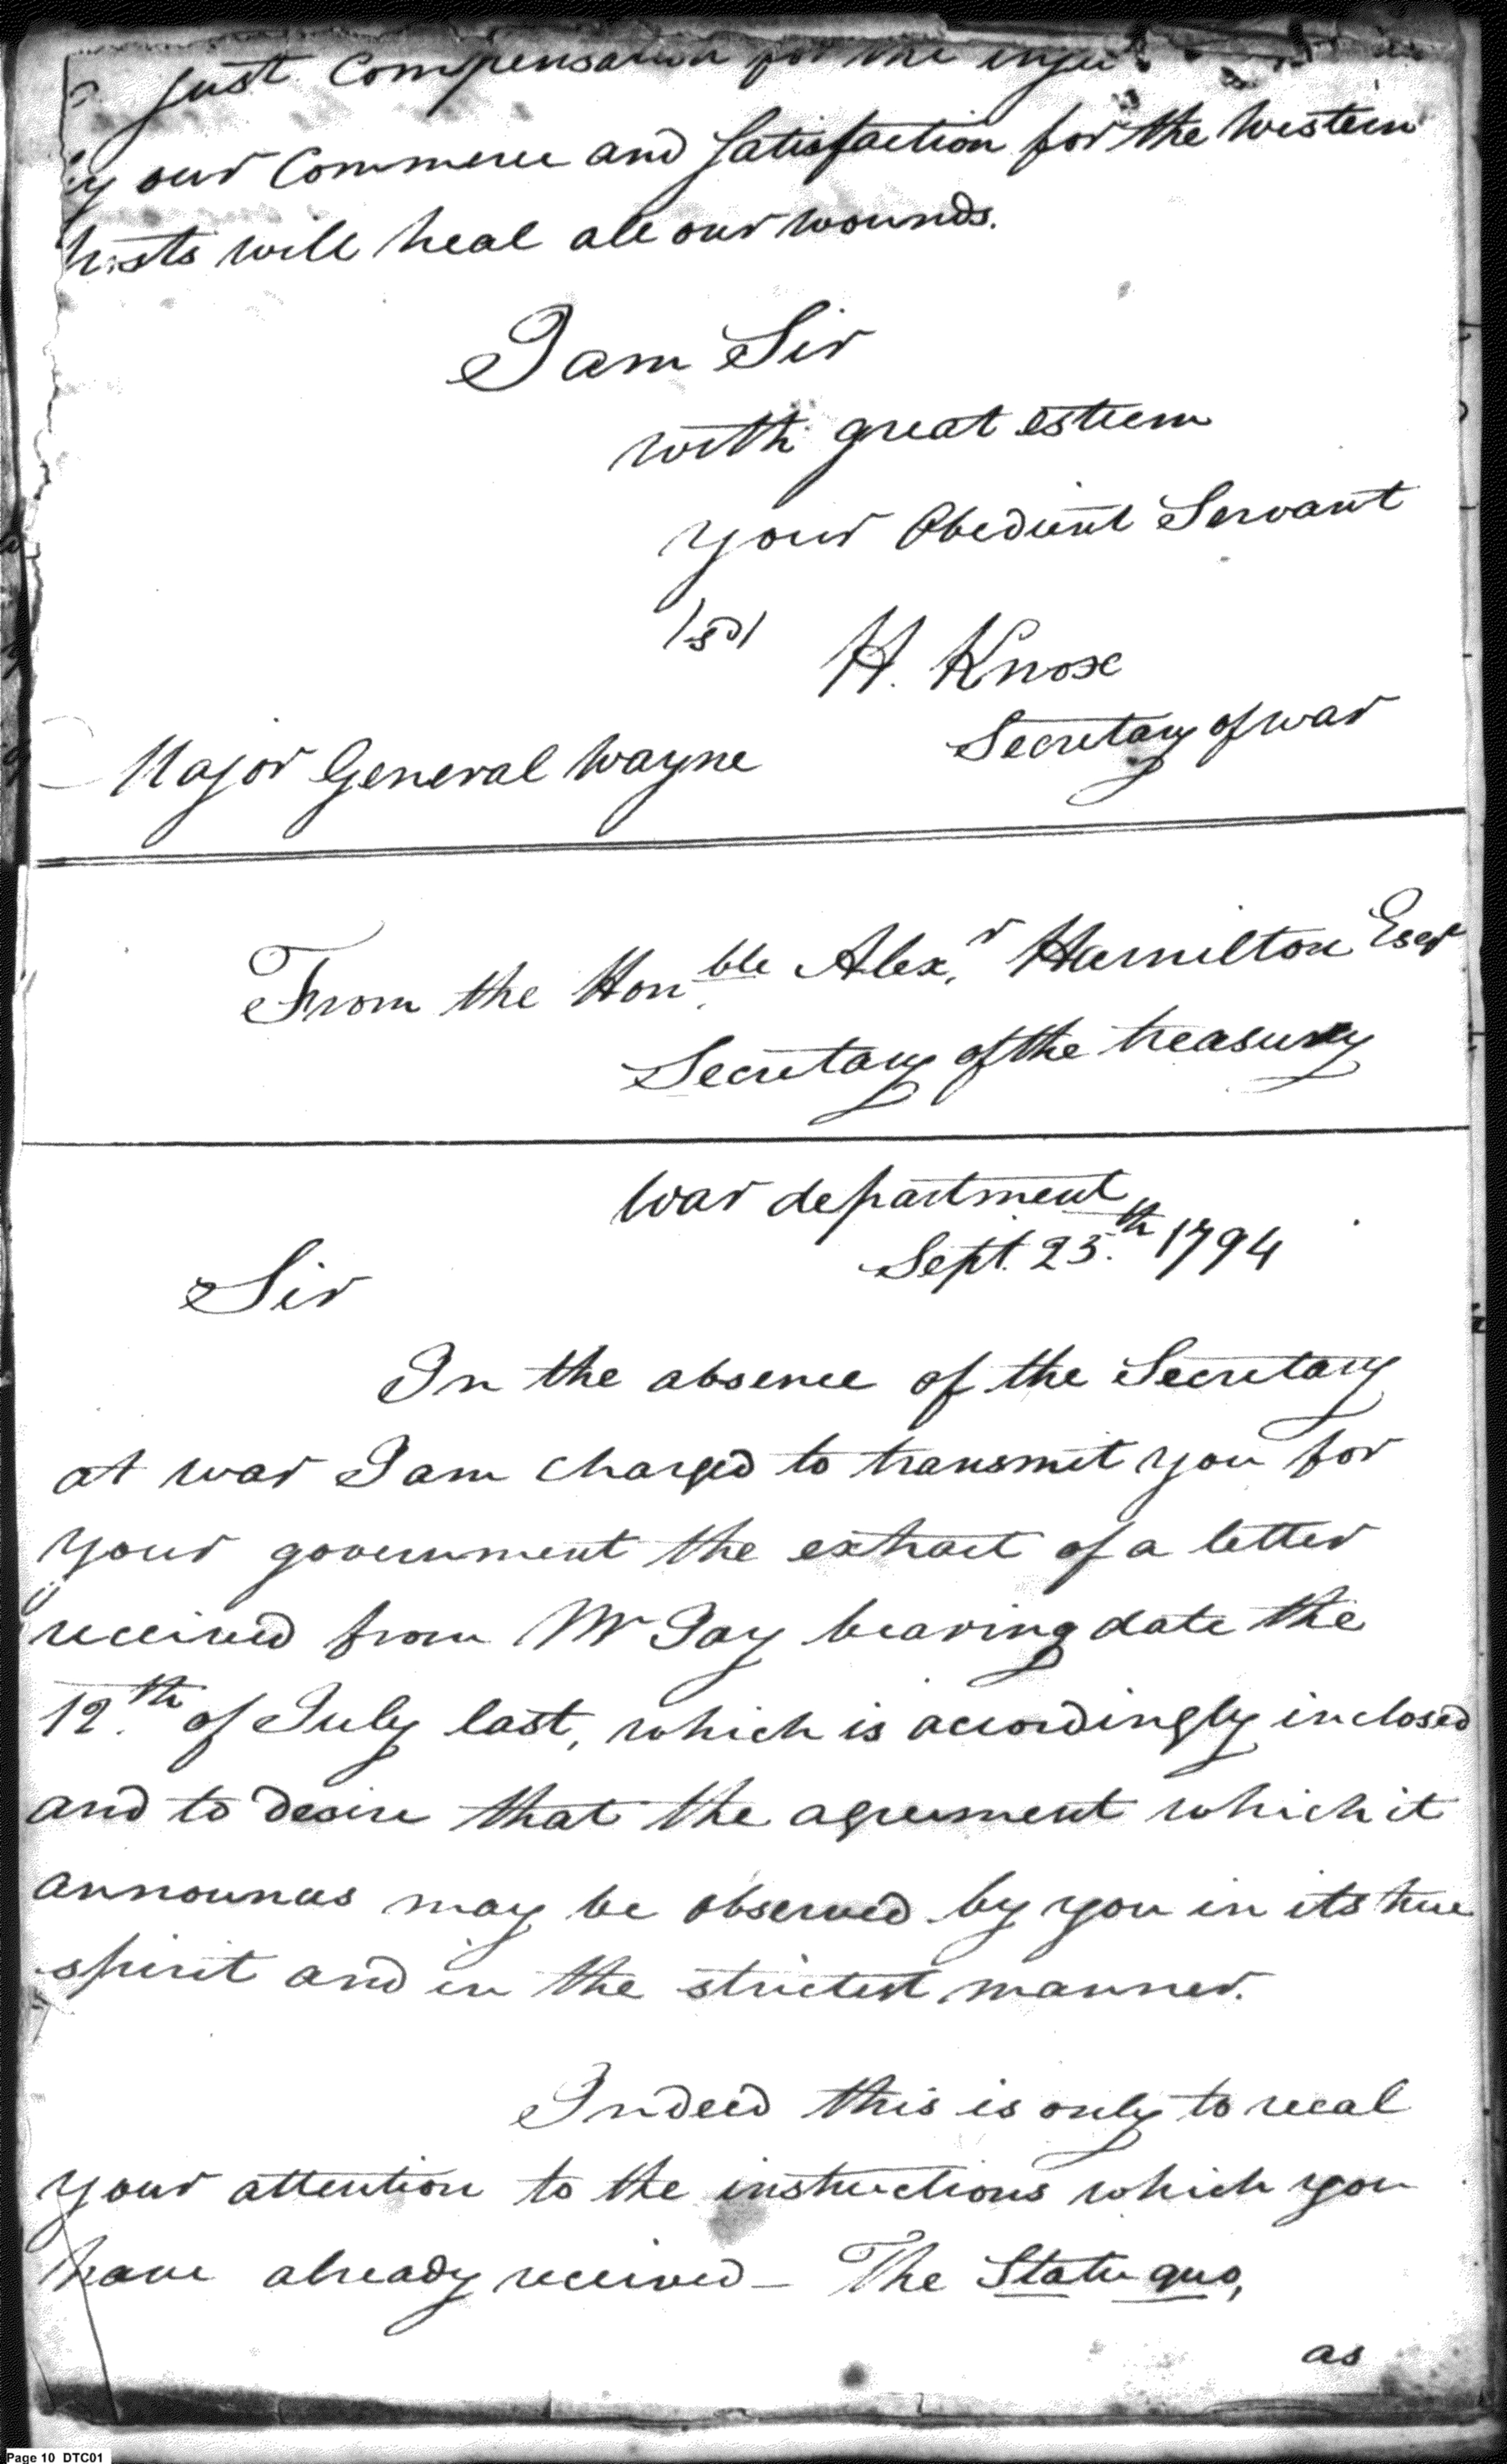 just Compensation for the
our Commerce and Satisfaction for the Western
will heal all our wounds.
I am Sir
with great esteem
your Obedient Servant
/sd/ H. Knox
Secretary of war
Major General Wayne
From the Honble. Alexr. Hamilton Esqr
Secretary of the treasury
War department
Sept. 25.th 1794
Sir
In the absence of the Secretary
at war I am charged to transmit you for
your government the extract of a letter
received from Mr Jay bearing date the
12.th of July last, which is accordingly inclosed
and to desire that the agreement which it
announces may be observed by you in its true
spirit and in the strictest manner.
Indeed this is only to recal
your attention to the instructions which you
have already received – The Statu quo,
as
Page 10 DTC01